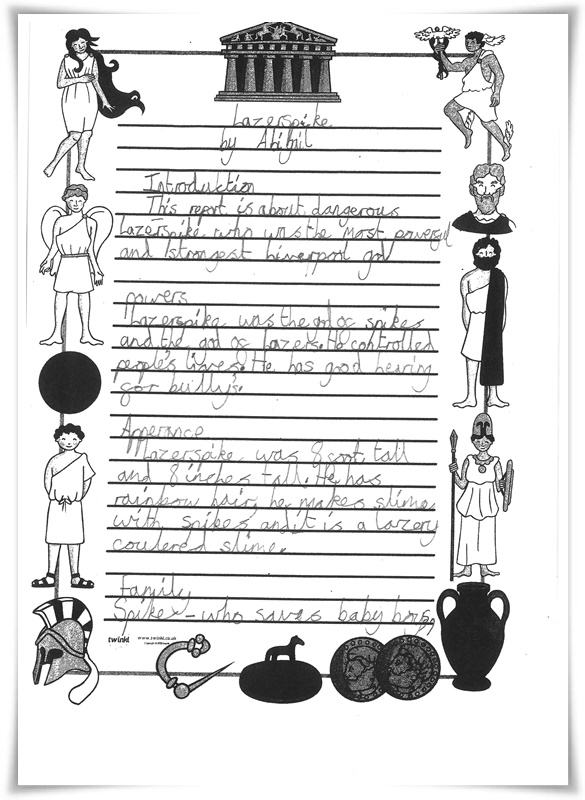 Lazerspike
by Abigail
Introduction
This report is about dangerous
Lazerspike who was the most powerful
and strongest Liverpool god
powers
Lazerspike was the god of spikes
and the god of lazers. He controlled
people's lives. He has good hearing
for bully's.
Apperance
Lazerspike was 8 foot tall
and 8 inches tall. He has
rainbow hair, he makes slime
with spikes and it is a lazery
coulered slime.
Family
Spikex - who saves baby boys
twinkl www.twinkl.co.uk